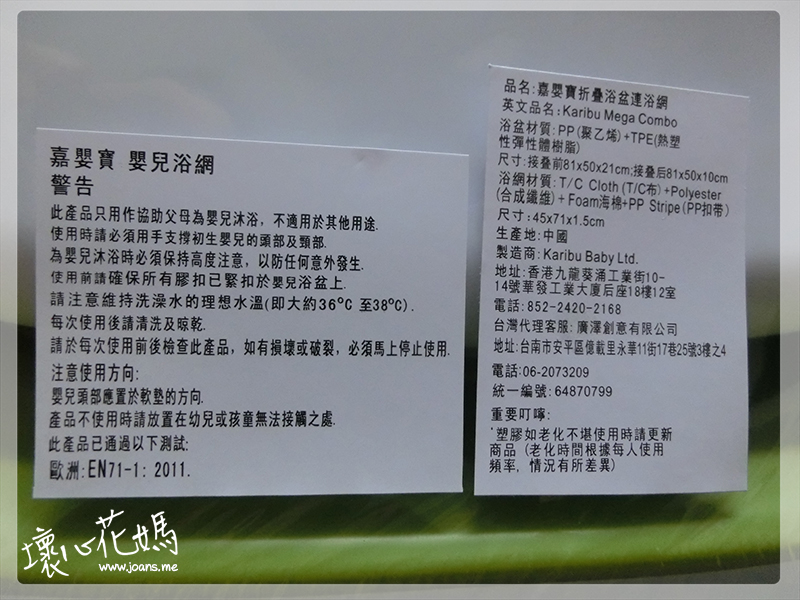 嘉嬰寶 嬰兒浴網
警告
此產品只用作協助父母為嬰兒沐浴，不適用於其他用途.
使用時請必須用手支撐初生嬰兒的頭部及頸部.
為嬰兒沐浴時必須保持高度注意，以防任何意外發生.
使用前請確保所有膠扣已緊扣於嬰兒浴盆上.
請注意維持洗澡水的理想水溫(即大約36°C 至38°C).
每次使用後請清洗及晾乾.
請於每次使用前後檢查此產品，如有損壞或破裂，必須馬上停止使用.
注意使用方向:
嬰兒頭部應置於軟墊的方向.
產品不使用時請放置在幼兒或孩童無法接觸之處.
此產品已通過以下測試:
歐洲:EN71-1: 2011.
品名:嘉嬰寶折疊浴盆連浴網
英文品名:Karibu Mega Combo
浴盆材質:PP(聚乙烯)+TPE(熱塑
性彈性體樹脂)
尺寸:接疊前81x50x21cm;接疊后81x50x10cm
浴網材質:T/C Cloth(T/C布)+Polyester
(合成纖維)+Foam海棉+PP Stripe(PP扣帶)
尺寸:45x71x1.5cm
生產地:中國
製造商:Karibu Baby Ltd.
地址:香港九龍葵涌工業街10-
14號華發工業大廈后座18樓12室
電話:852-2420-2168
台灣代理客服:廣澤創意有限公司
地址:台南市安平區億載里永華11街17巷25號3樓之4
電話:06-2073209
統一編號:64870799
重要叮嚀:
*塑膠如老化不堪使用時請更新
商品 (老化時間根據每人使用
頻率，情況有所差異)
壞心花媽
www.joans.me